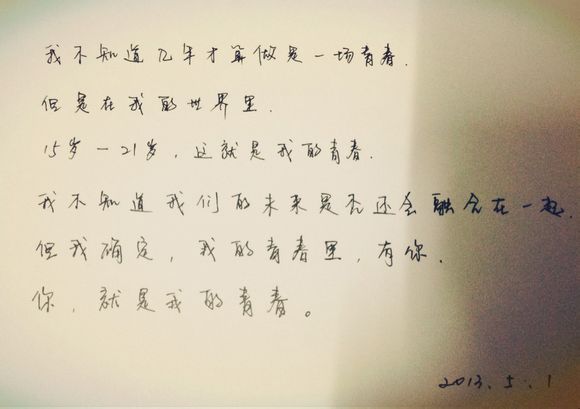 我不知道几年才算做是一场青春.
但是在我的世界里.
15岁一21岁, 这就是我的青春.
我不知道我们的未来是否还会融合在一起.
但我确定, 我的青春里, 有你.
你, 就是我的青春。
2013.5.1